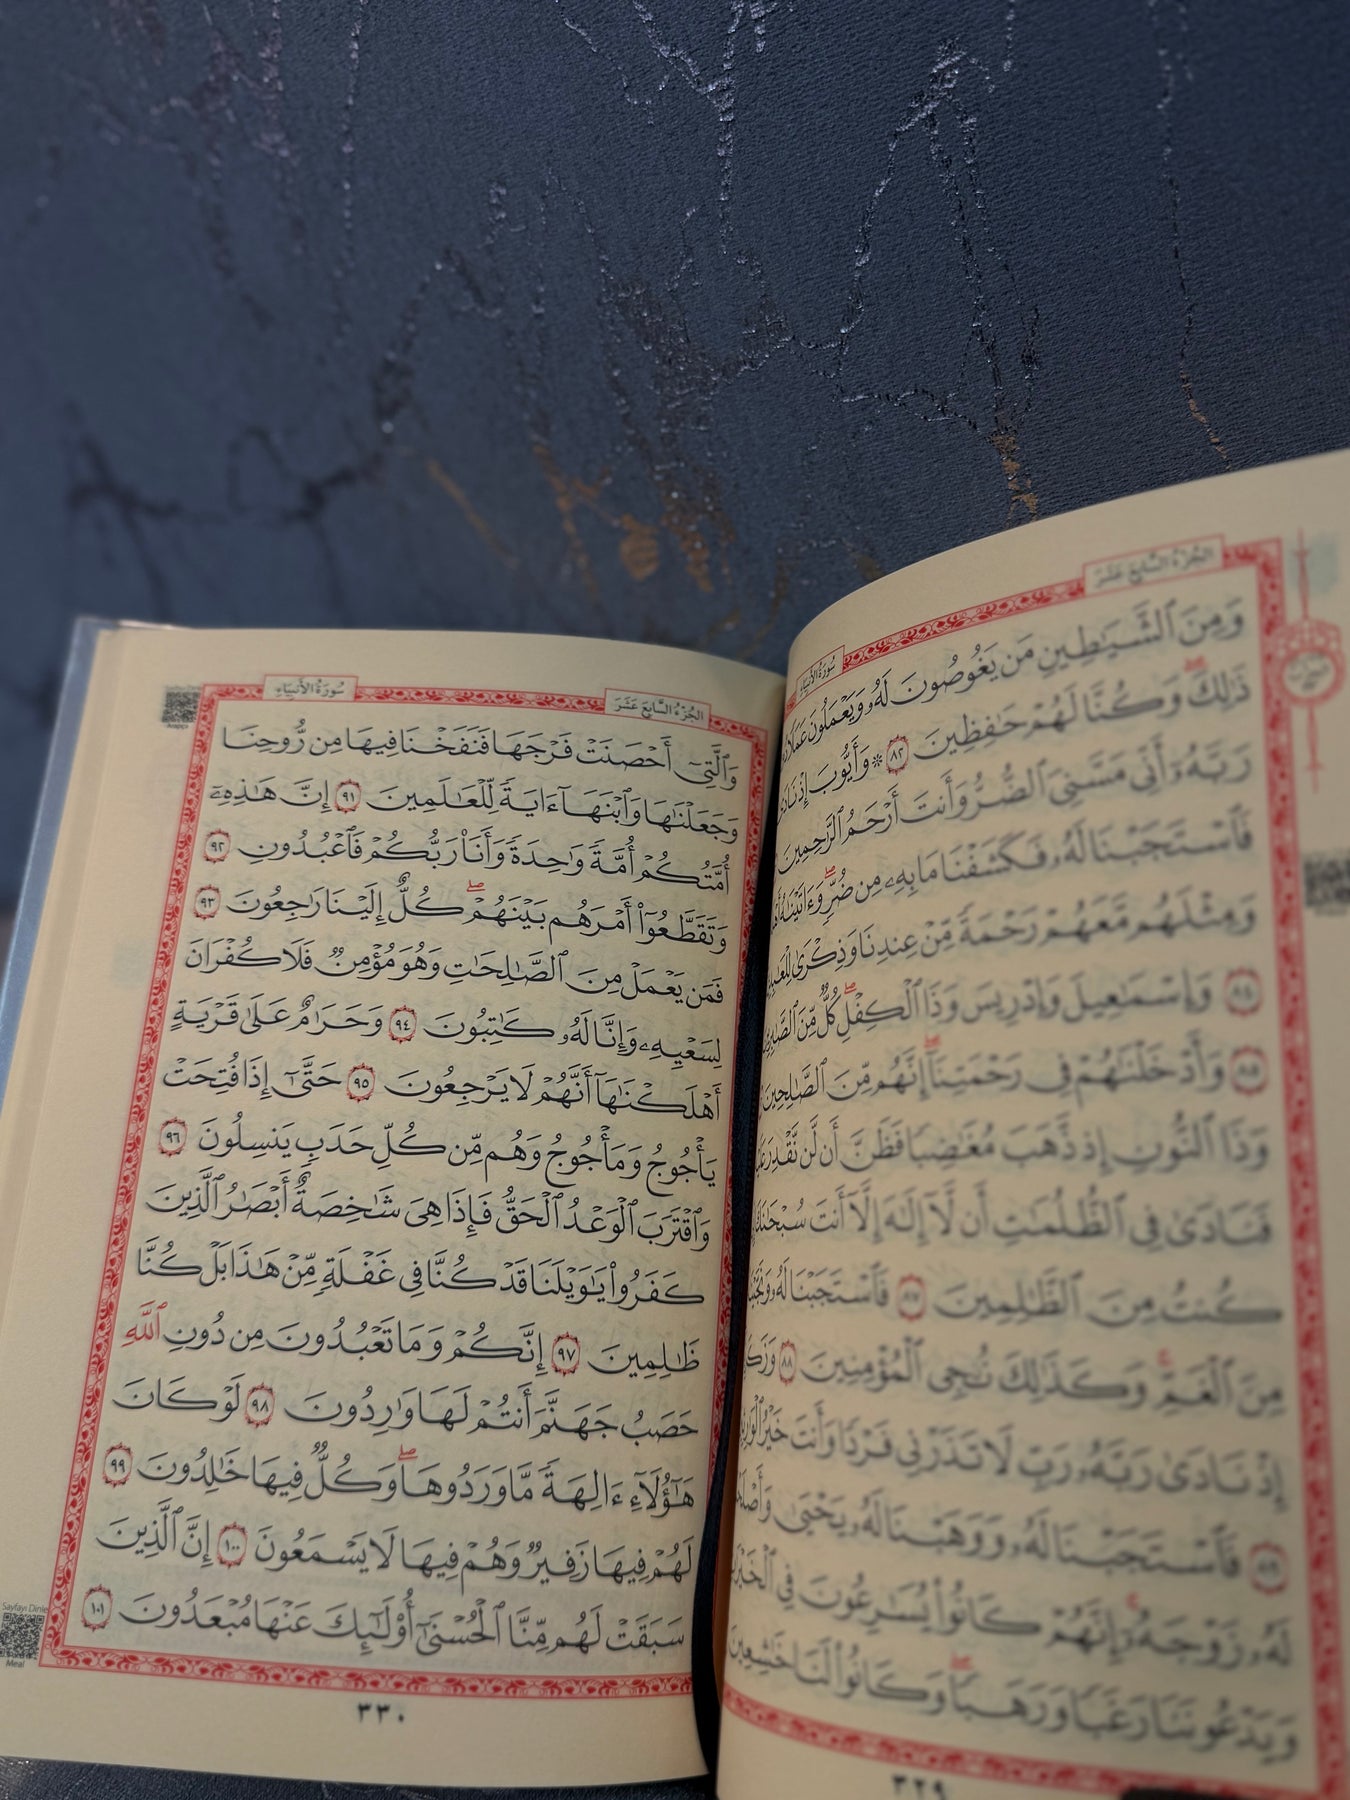 الجُزْءُ السَّابِعَ عَشَرَ
سُورَةُ الأَنبِيَاءِ
وَمِنَ ٱلشَّيَٰطِينِ مَن يَغُوصُونَ لَهُۥ وَيَعْمَلُونَ عَمَلًا
ذَٰلِكَۖ وَكُنَّا لَهُمْ حَٰفِظِينَ ٨٢ ۞ وَأَيُّوبَ إِذْ نَادَىٰ
رَبَّهُۥٓ أَنِّى مَسَّنِىَ ٱلضُّرُّ وَأَنتَ أَرْحَمُ ٱلرَّٰحِمِينَ
فَٱسْتَجَبْنَا لَهُۥ فَكَشَفْنَا مَا بِهِۦ مِن ضُرٍّۖ وَءَاتَيْنَٰهُ
وَمِثْلَهُم مَّعَهُمْ رَحْمَةً مِّنْ عِندِنَا وَذِكْرَىٰ
٨٤ وَإِسْمَٰعِيلَ وَإِدْرِيسَ وَذَا ٱلْكِفْلِۖ كُلٌّ مِّنَ ٱلصَّٰبِرِينَ
٨٥ وَأَدْخَلْنَٰهُمْ فِى رَحْمَتِنَآۖ إِنَّهُم مِّنَ ٱلصَّٰلِحِينَ
وَذَا ٱلنُّونِ إِذ ذَّهَبَ مُغَٰضِبًا فَظَنَّ أَن لَّن نَّقْدِرَ
فَنَادَىٰ فِى ٱلظُّلُمَٰتِ أَن لَّآ إِلَٰهَ إِلَّآ أَنتَ سُبْحَٰنَكَ
كُنتُ مِنَ ٱلظَّٰلِمِينَ ٨٧ فَٱسْتَجَبْنَا لَهُۥ وَنَجَّيْنَٰهُ
مِنَ ٱلْغَمِّۚ وَكَذَٰلِكَ نُۨجِى ٱلْمُؤْمِنِينَ ٨٨
إِذْ نَادَىٰ رَبَّهُۥ رَبِّ لَا تَذَرْنِى فَرْدًا وَأَنتَ خَيْرُ ٱلْوَٰرِثِينَ
٨٩ فَٱسْتَجَبْنَا لَهُۥ وَوَهَبْنَا لَهُۥ يَحْيَىٰ
لَهُۥ زَوْجَهُۥٓۚ إِنَّهُمْ كَانُوا۟ يُسَٰرِعُونَ فِى ٱلْخَيْرَٰتِ
وَيَدْعُونَنَا رَغَبًا وَرَهَبًاۖ وَكَانُوا۟ لَنَا خَٰشِعِينَ
٣٢٩
الجُزْءُ السَّابِعَ عَشَرَ
سُورَةُ الأَنبِيَاءِ
وَٱلَّتِىٓ أَحْصَنَتْ فَرْجَهَا فَنَفَخْنَا فِيهَا مِن رُّوحِنَا
وَجَعَلْنَٰهَا وَٱبْنَهَآ ءَايَةً لِّلْعَٰلَمِينَ ٩١ إِنَّ هَٰذِهِۦٓ
أُمَّتُكُمْ أُمَّةً وَٰحِدَةً وَأَنَا۠ رَبُّكُمْ فَٱعْبُدُونِ ٩٢
وَتَقَطَّعُوٓا۟ أَمْرَهُم بَيْنَهُمْۖ كُلٌّ إِلَيْنَا رَٰجِعُونَ ٩٣
فَمَن يَعْمَلْ مِنَ ٱلصَّٰلِحَٰتِ وَهُوَ مُؤْمِنٌ فَلَا كُفْرَانَ
لِسَعْيِهِۦ وَإِنَّا لَهُۥ كَٰتِبُونَ ٩٤ وَحَرَٰمٌ عَلَىٰ قَرْيَةٍ
أَهْلَكْنَٰهَآ أَنَّهُمْ لَا يَرْجِعُونَ ٩٥ حَتَّىٰٓ إِذَا فُتِحَتْ
يَأْجُوجُ وَمَأْجُوجُ وَهُم مِّن كُلِّ حَدَبٍ يَنسِلُونَ ٩٦
وَٱقْتَرَبَ ٱلْوَعْدُ ٱلْحَقُّ فَإِذَا هِىَ شَٰخِصَةٌ أَبْصَٰرُ ٱلَّذِينَ
كَفَرُوا۟ يَٰوَيْلَنَا قَدْ كُنَّا فِى غَفْلَةٍ مِّنْ هَٰذَا بَلْ كُنَّا
ظَٰلِمِينَ ٩٧ إِنَّكُمْ وَمَا تَعْبُدُونَ مِن دُونِ ٱللَّهِ
حَصَبُ جَهَنَّمَ أَنتُمْ لَهَا وَٰرِدُونَ ٩٨ لَوْ كَانَ
هَٰٓؤُلَآءِ ءَالِهَةً مَّا وَرَدُوهَاۖ وَكُلٌّ فِيهَا خَٰلِدُونَ ٩٩
لَهُمْ فِيهَا زَفِيرٌ وَهُمْ فِيهَا لَا يَسْمَعُونَ ١٠٠ إِنَّ ٱلَّذِينَ
سَبَقَتْ لَهُم مِّنَّا ٱلْحُسْنَىٰٓ أُو۟لَٰٓئِكَ عَنْهَا مُبْعَدُونَ ١٠١
٣٣٠
Sayfayı Dinle
Meal